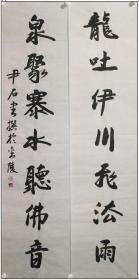 龍吐伊川飛法雨
泉聚寨水聽佛音
尹石書撰於金陵